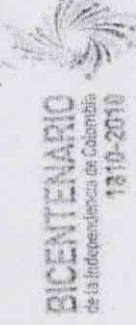 BICENTENARIO
de la Independencia de Colombia
1810-2010